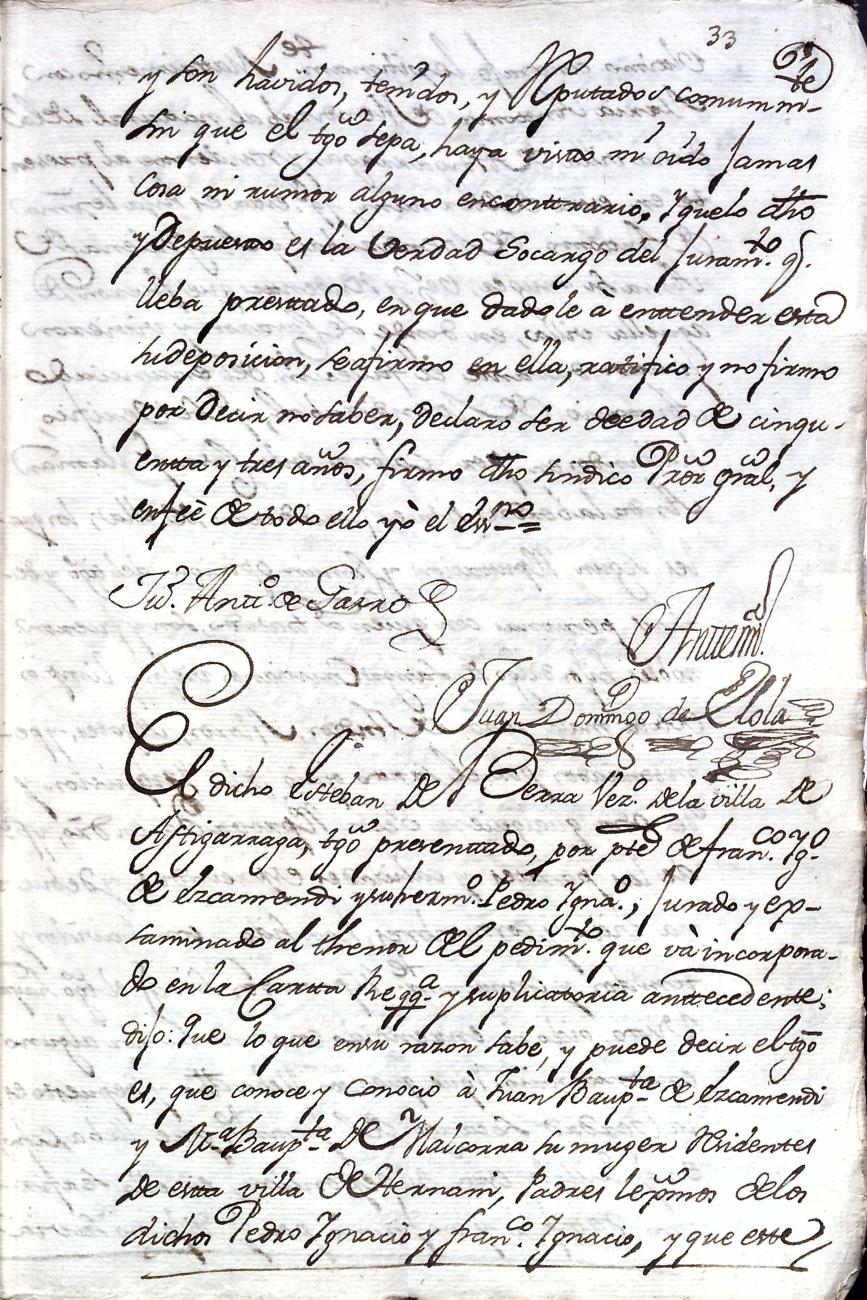 33
y son havidos, tenidos, y Reputados comunm.te
sin que el tgo sepa, haya visto ni oido Jamas
Cosa ni rumor alguno encontrario. Yquelo dho
y Depuesto es la Verdad Socargo del Juram.to q.
lleba prestado, en que dadole à enttender esta
su deposicion, se afirmo en ella, ratifico y no firmo
por Decir no saber, declaro ser de edad de cinqu-
entta y tres años, firmo dho sindico Pror gral, y
en feè de todo ello yò el Essno =
Ju.o Antt.o de Garro
Anttemi.
Juan Domingo de Elola
El dicho Esteban de Berra Vez.o de la villa de
Astigarraga, tgo presenttado, por pte de fran.co Yg.o
de Ezcamendi y su herm.o Pedro Igna.o, Jurado y ex-
saminado al thenor del pedim.to que và incorpora-
do en la Cartta Reqq.a y suplicatoria anttecedente;
dijo: Que lo que en su razon sabe, y puede decir el tgo
es, que conoce y conocio à Juan Baup.ta de Ezcamendi
y M.a Baup.ta de Malcorra su muger Residentes
de estta villa de Hernani, Padres lexmos de los
dichos Pedro Ignacio y fran.co Ignacio, y que este